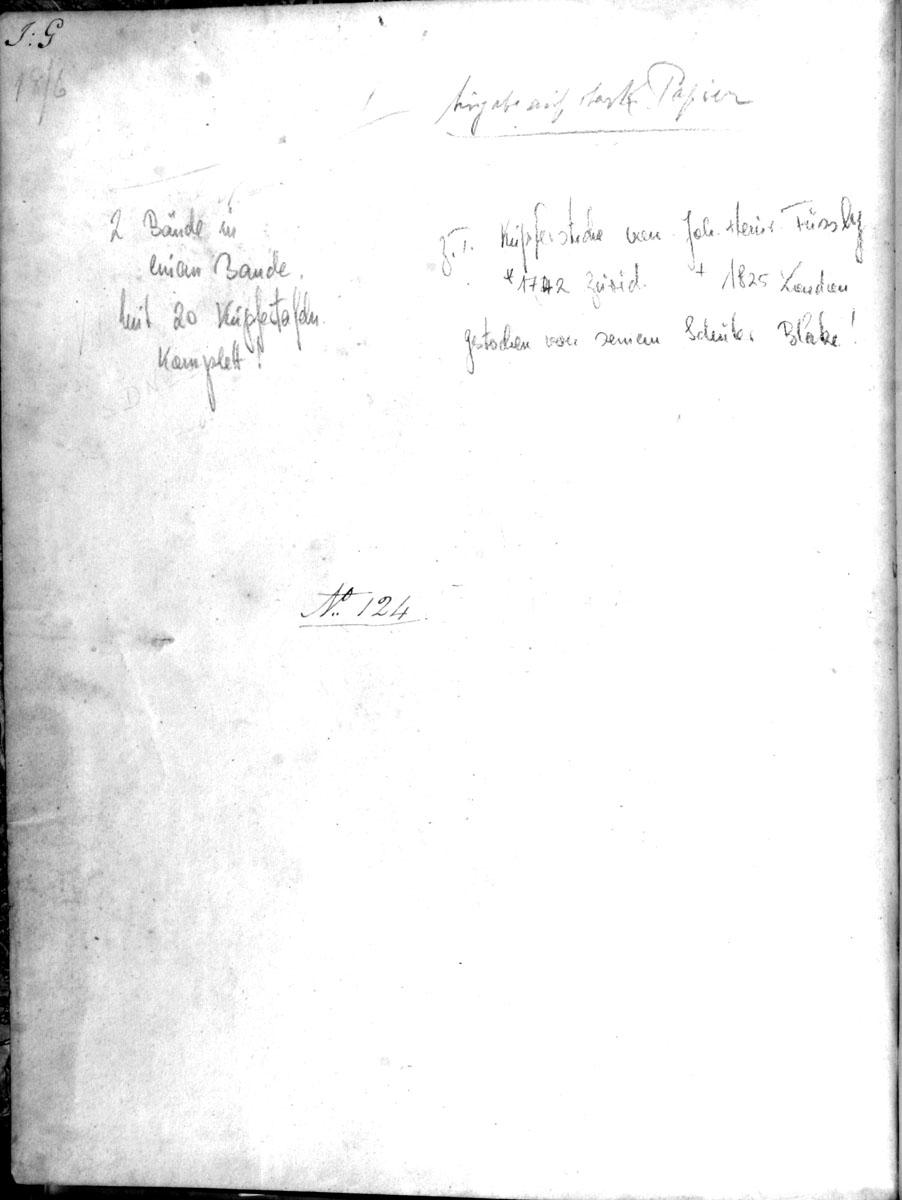 J: G
18/6
auf stark Papier
2 Bände in
einem Bande.
mit 20 Kupfertafeln.
Komplett!
z.T. Kupferstiche von Joh. Heinr. Füssly
*1742 Zürich + 1825 London
gestochen von seinem Schüler Blake!
No. 124